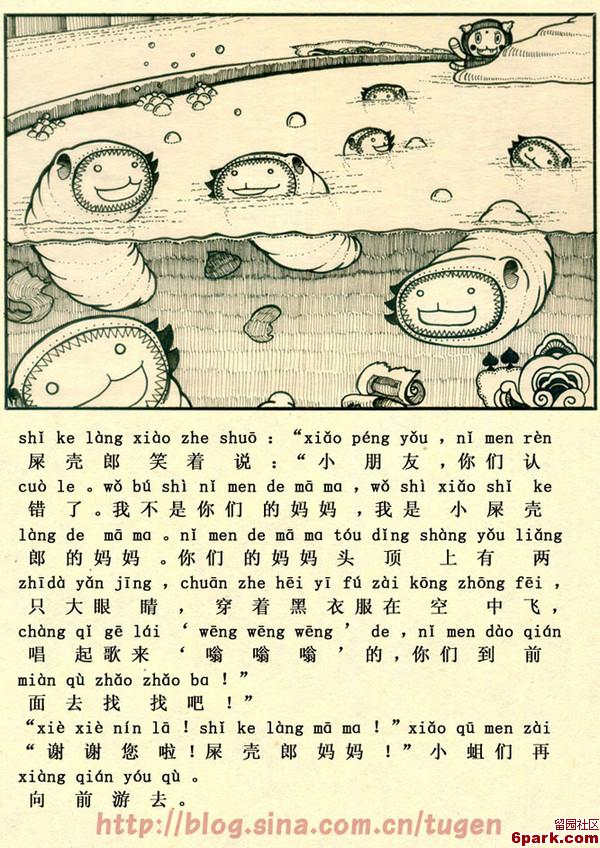 shǐ ke làng xiào zhe shuō：“xiǎo péng yǒu，nǐ men rèn
屎壳郎笑着说：“小朋友，你们认
cuò le。wǒ bú shì nǐ men de mā ma，wǒ shì xiǎo shǐ ke
错了。我不是你们的妈妈，我是小屎壳
làng de mā ma。nǐ men de mā ma tóu dǐng shàng yǒu liǎng
郎的妈妈。你们的妈妈头顶上有两
zhīdà yǎn jīng，chuān zhe hēi yī fú zài kōng zhōng fēi，
只大眼睛，穿着黑衣服在空中飞，
chàng qǐ gē lái‘wēng wēng wēng’de，nǐ men dào qián
唱起歌来‘嗡嗡嗡’的，你们到前
miàn qù zhǎo zhǎo ba！”
面去找找吧！”
“xiè xiè nín lā！shǐ ke làng mā ma！”xiǎo qū men zài
“谢谢您啦！屎壳郎妈妈！”小蛆们再
xiàng qián yóu qù。
向前游去。
http://blog.sina.com.cn/tugen
留园社区
6park.com